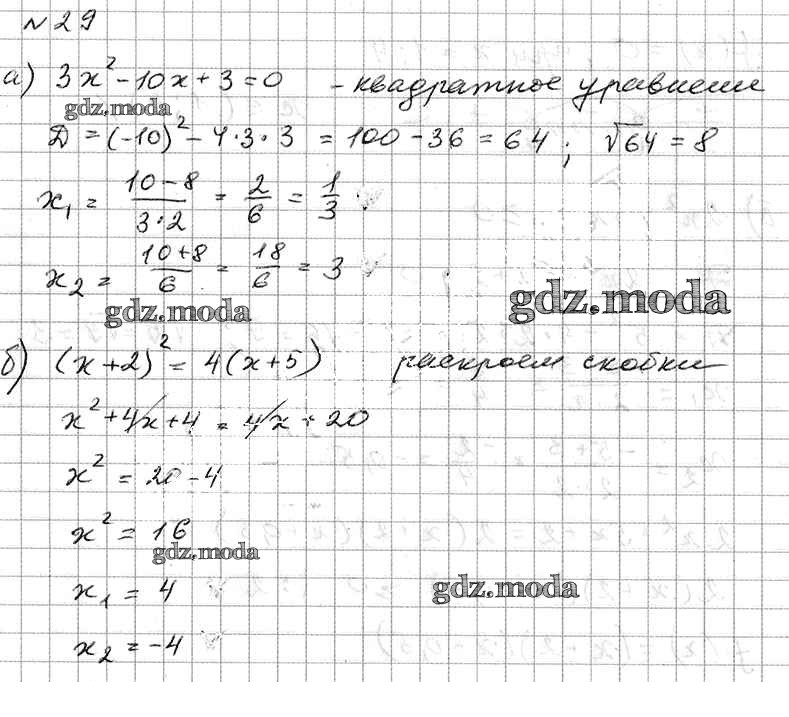 № 29
а) 3x² - 10x + 3 = 0 - квадратное уравнение
gdz.moda
D = (-10)² - 4·3·3 = 100 - 36 = 64; √64 = 8
x₁ = (10 - 8)/(3·2) = 2/6 = 1/3
x₂ = (10 + 8)/6 = 18/6 = 3
gdz.moda
gdz.moda
б) (x + 2)² = 4(x + 5) раскроем скобки
x² + 4x + 4 = 4x + 20
x² = 20 - 4
x² = 16
gdz.moda
x₁ = 4
gdz.moda
x₂ = -4